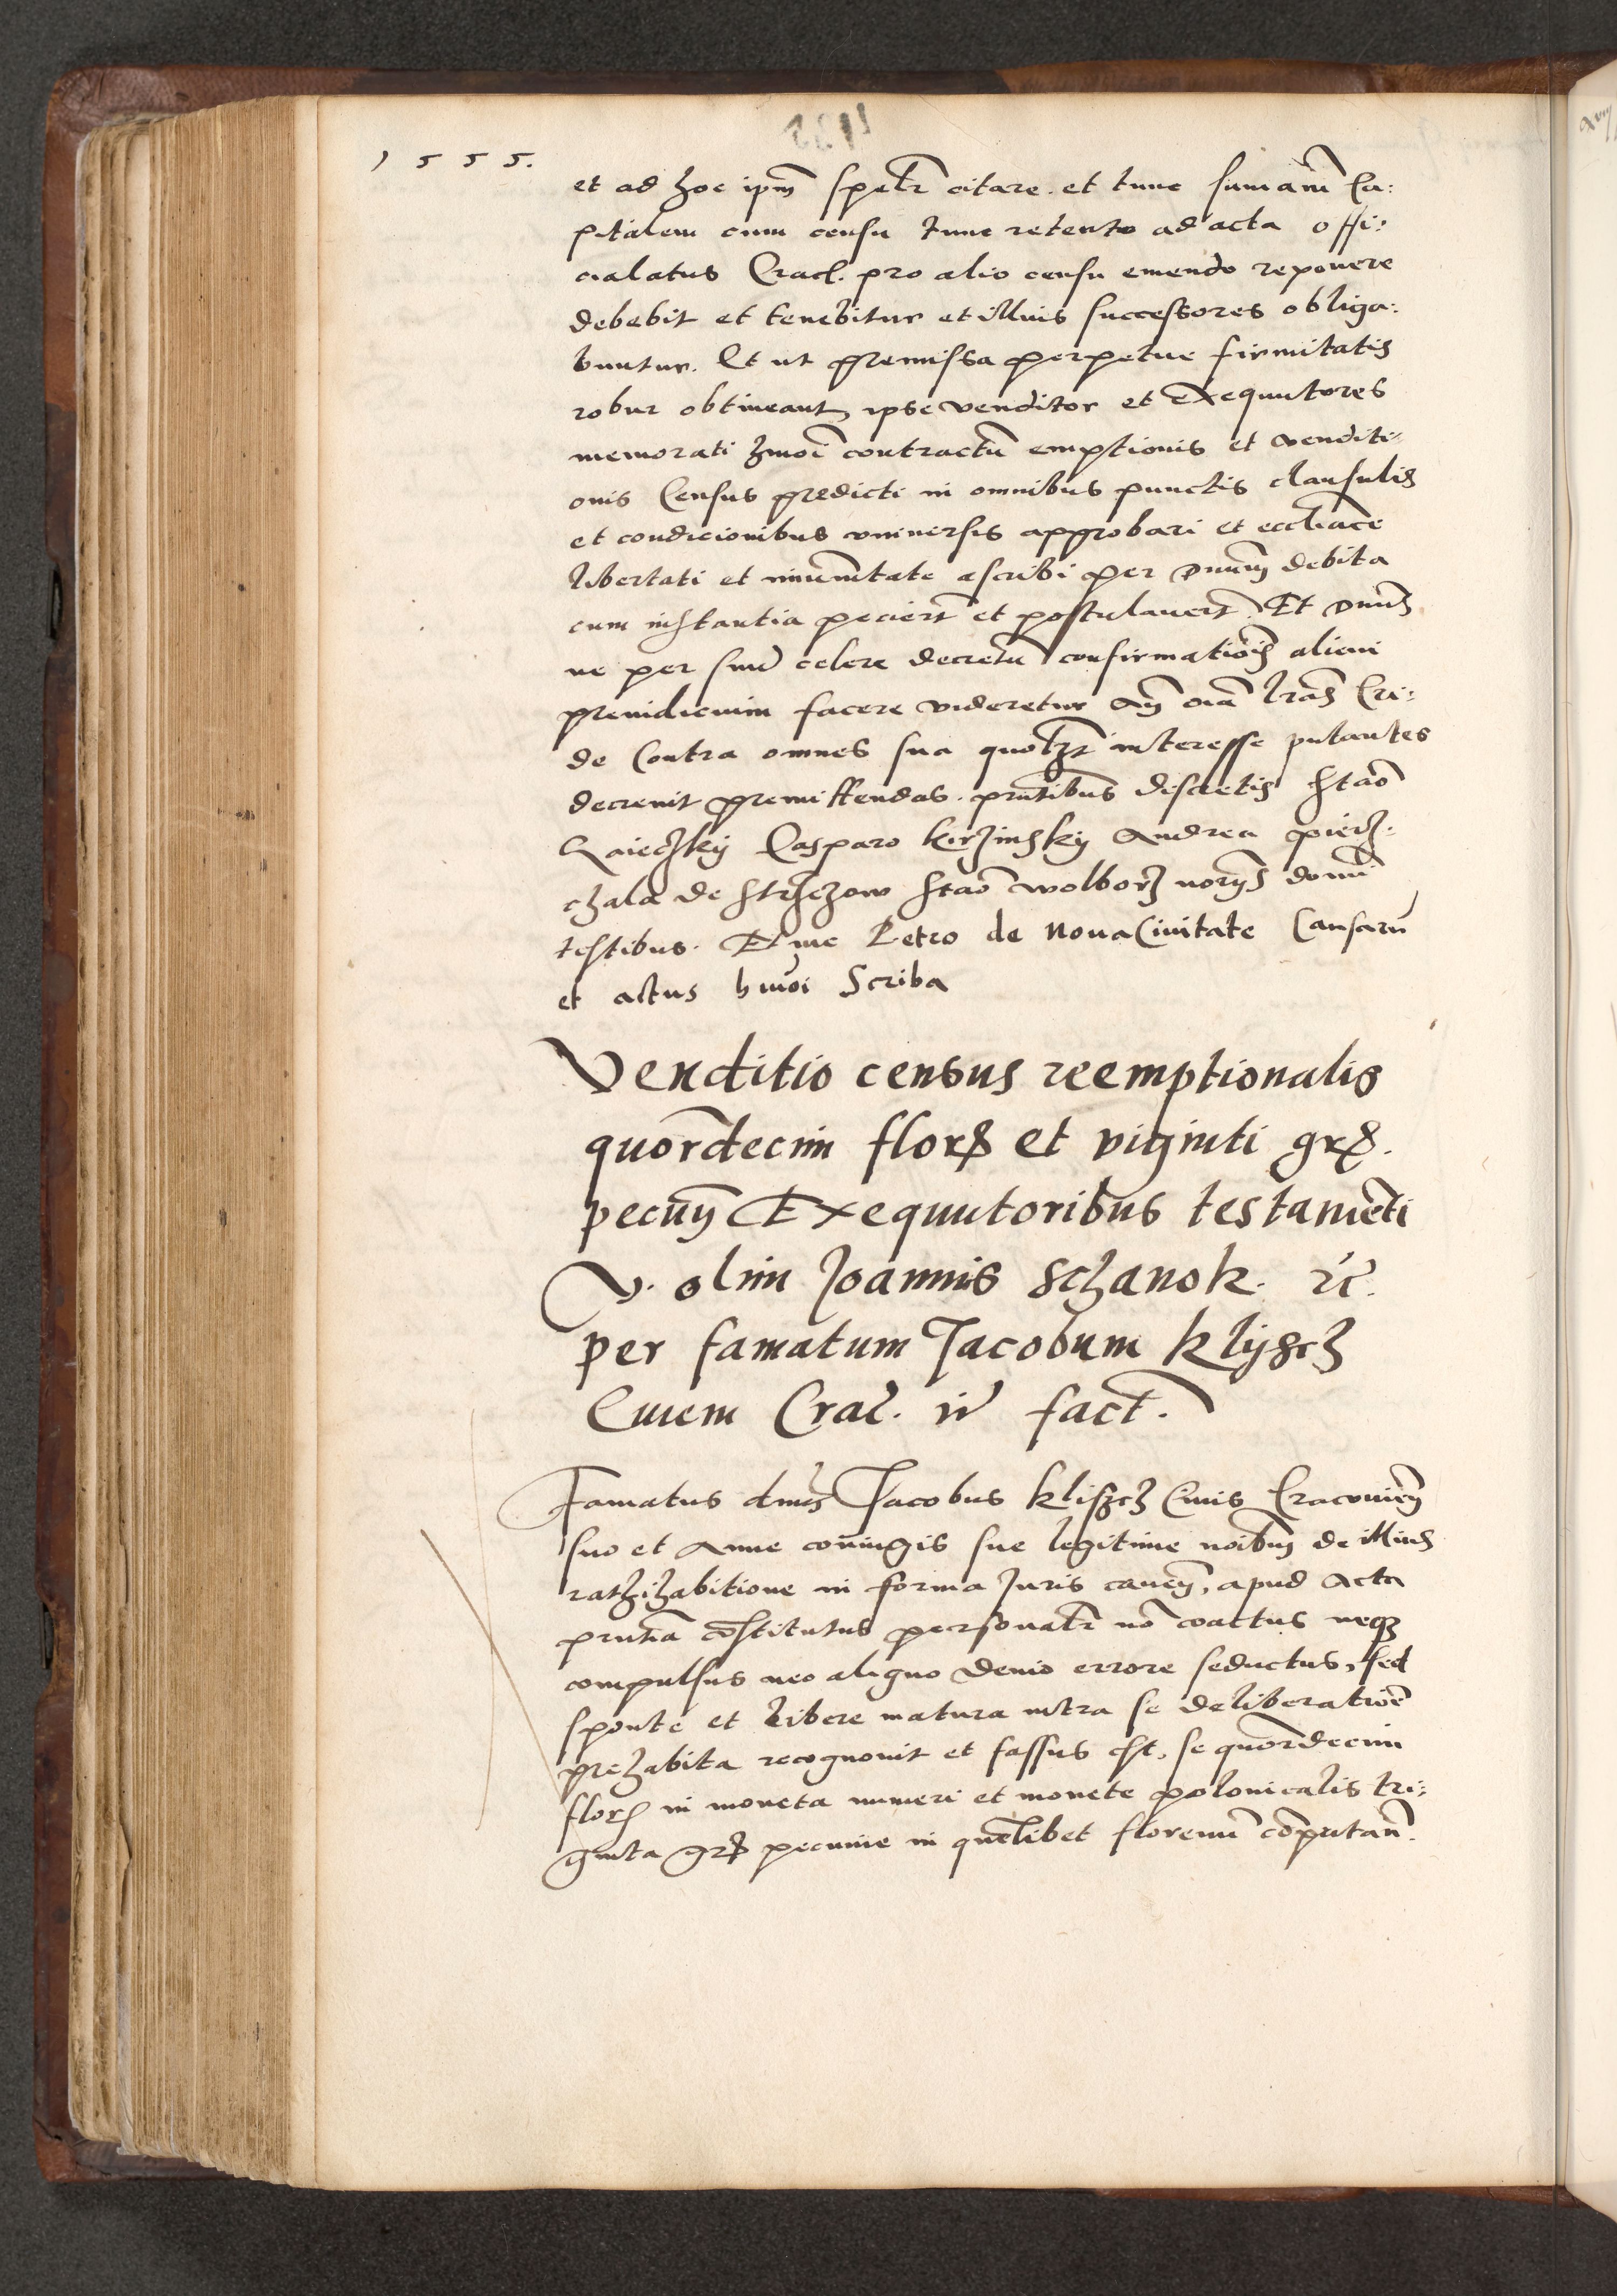 1555.
et ad hoc ipm̄ spetr̄ citare. et tunc sum̄am Ca:
pitalem cum censu tunc retento ad acta offi:
cialatus Crac. pro alio censu emendo reponere
debebit et tenebitur et illius successores obliga:
buntur. Et ut premissa perpetue firmitatis
robur obtineant, ipse venditor et Exequutores
memorati hmoi contractū emptionis et venditi
onis Census predicti in omnibus punctis clausulis
et condicionibus universis approbari et ecclīace
libertati et immunitate ascribi per Dnum debita
cum instantia peciert et postulavert. Et Dnus
ne per suū celere decretū confirmationis alicui
preiudicium facere videretur an̄ oīa lrās Cri:
de Contra omnes sua quolzt interesse putantes
decrevit premittendas. pntibus discretis Stāo
Caspāro kirzinsky Andrea pierz:
chala de strzezow stāo wolborz notrys domī
testibus. Et me Petro de Nova Civitate Causarū
et actus hmoi Scriba
Venditio census reemptionalis
quōrdecim flor et viginti gr.
pecun̄ Exequutoribus testamēti
V. olim Joannis Schanok. ꝛc̄.
per famatum Jacobum klyscz
Civem Crac̄. in̄ fact̄.
Famatus dnus Jacobus kliszcz Civis Cracovien̄
suo et Anne coniugis sue legitime noībus de illius
rathihabitione in forma Juris caven̄, apud Acta
pn̄tia cōstitutus personalr̄ nō coactus neqz
compulsus nec aliquo devio errore seductus, sed
sponte et libere matura intra se deliberatiōe
prehabita recognovit et fassus est, se quōrdecim
flor in moneta numeri et monete polonicalis tri:
ginta gr pecunie in quēlibet florenū cōputan̄.